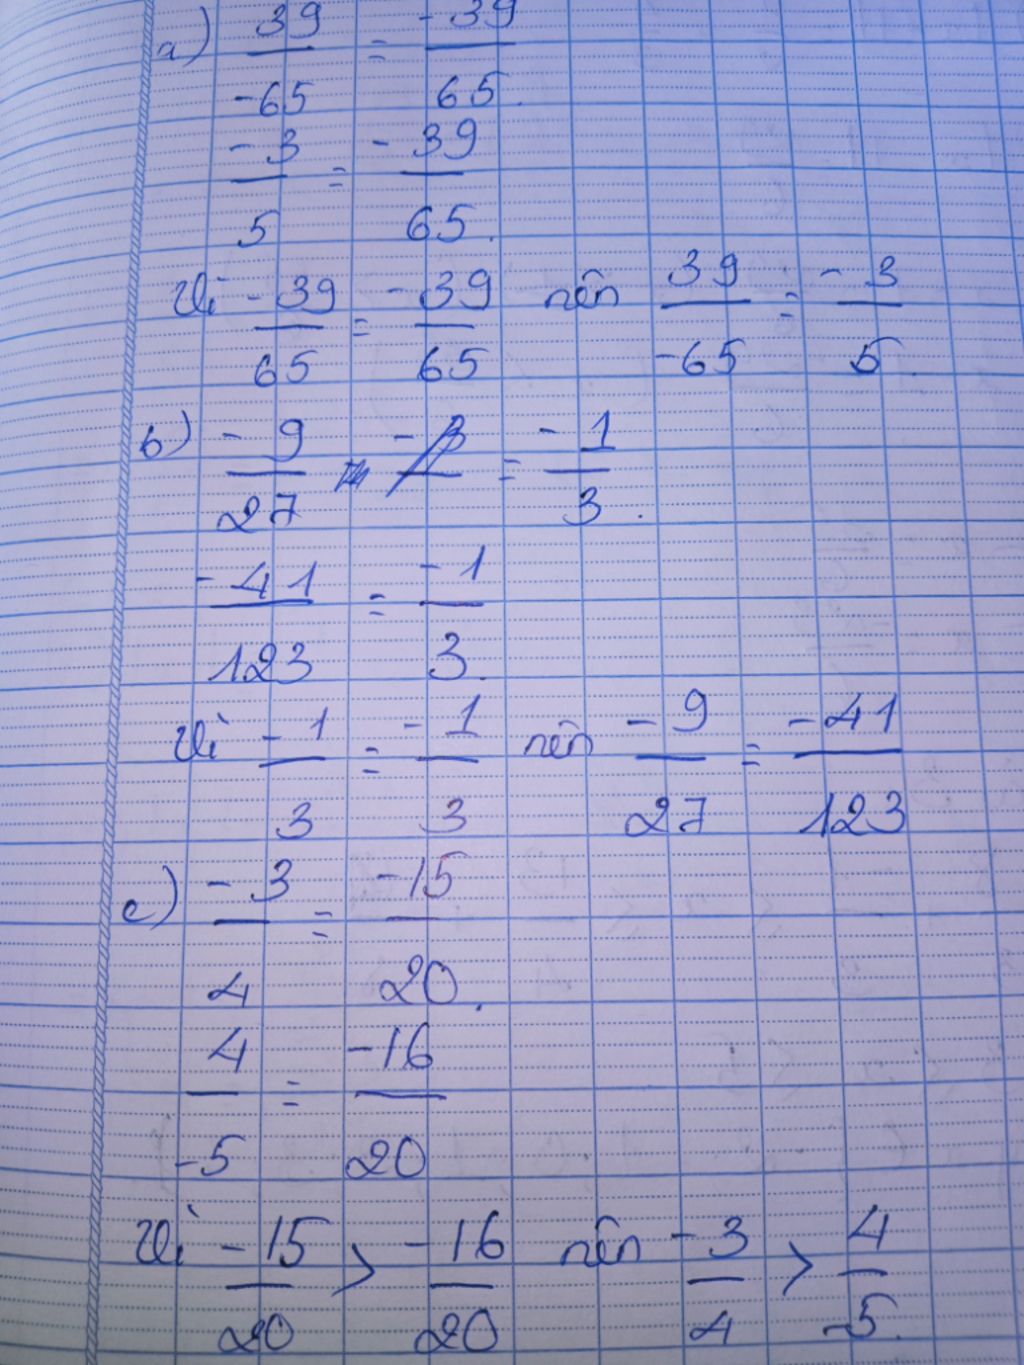 a) 39/-65 = -39/65.
-3/5 = -39/65.
Vì -39/65 = -39/65 nên 39/-65 = -3/5.
b) -9/27 = -1/3.
-41/123 = -1/3.
Vì -1/3 = -1/3 nên -9/27 = -41/123
c) -3/4 = -15/20.
4/-5 = -16/20
Vì -15/20 > -16/20 nên -3/4 > 4/-5.